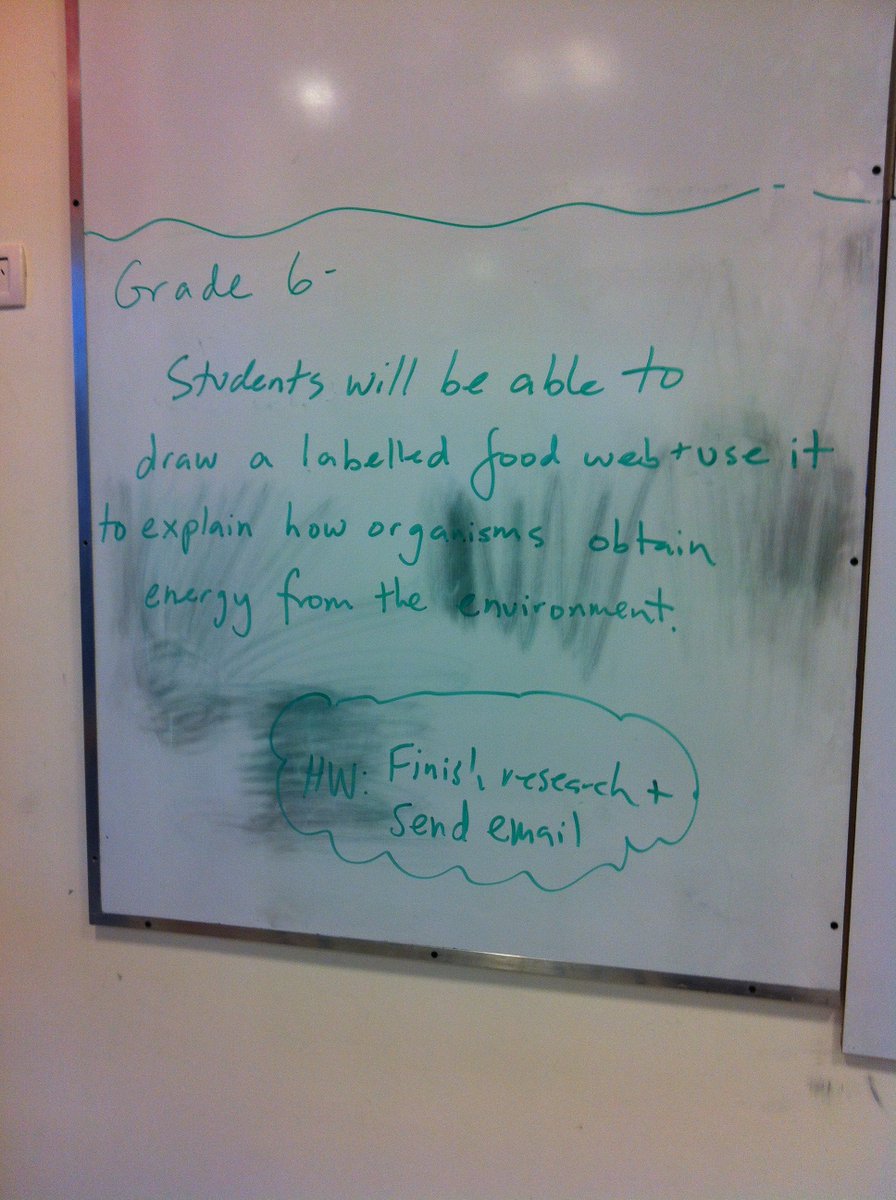 Grade 6-
Students will be able to
draw a labelled food web + use it
to explain how organisms obtain
energy from the environment.
HW: Finish research +
Send email